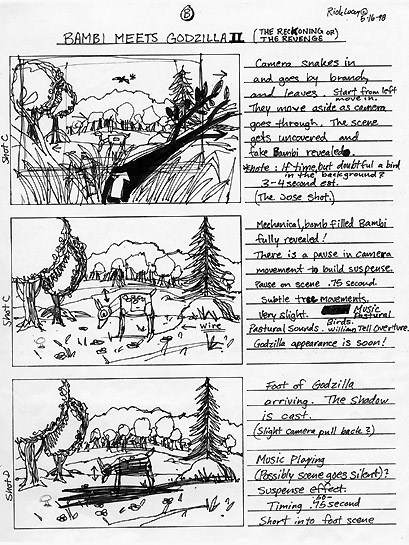 B
Rick Lucas
5-16-98
BAMBI MEETS GODZILLA II (THE RECKONING OR)
THE REVENGE
Shot C
Camera snakes in
and goes by branch,
and leaves. Start from left
move in.
They move aside as camera
goes through. The scene
gets uncovered and
fake Bambi revealed.
note: If time, but doubtful a bird
in the background?
3-4 second est.
(The Jose shot.)
Shot C
wire
Mechanical, bomb filled Bambi
fully revealed!
There is a pause in camera
movement to build suspense.
Pause on scene .75 second.
Subtle tree movements.
Very slight. Music
Pastural
Birds.
Pastural Sounds. William Tell Overture.
Godzilla appearance is soon!
Shot D
Foot of Godzilla
arriving. The Shadow
is cast.
(Slight camera pull back?)
Music Playing
(Possibly scene goes silent)?
Suspense effect.
.50-
Timing .75 second
Short into foot scene